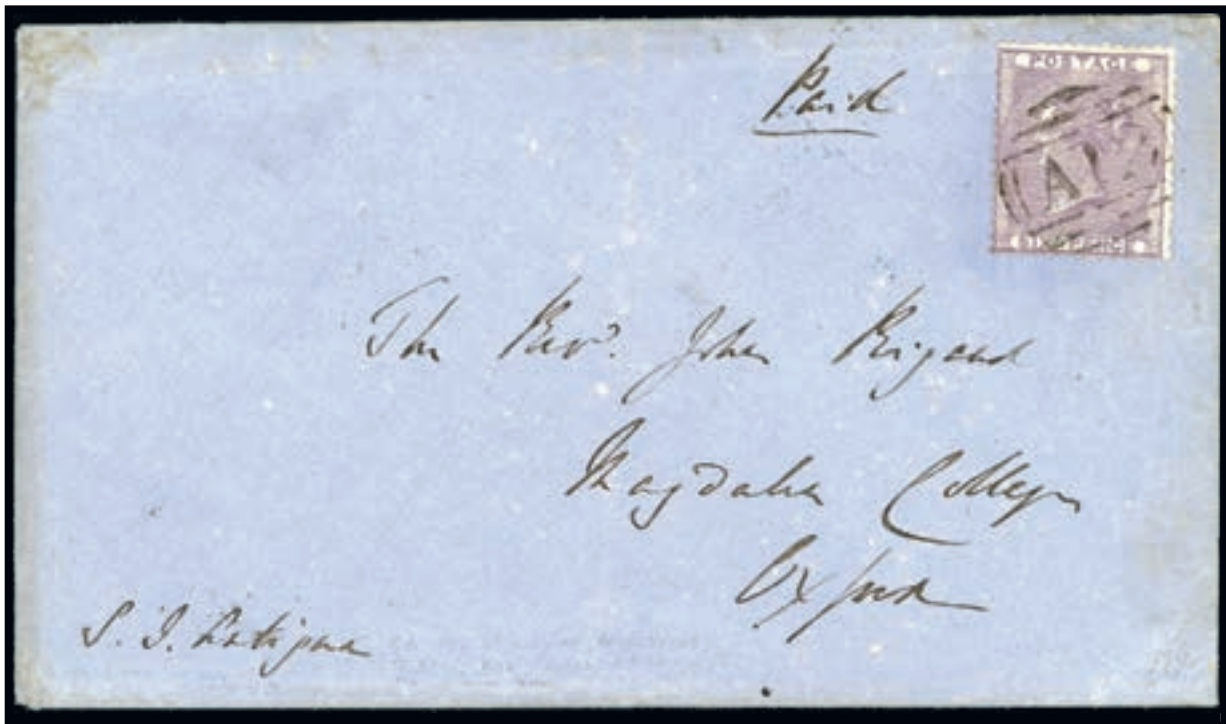 Paid
POSTAGE
A
SIX PENCE
The Revd. John Rigaud
Magdalen College
Oxford
S. J.